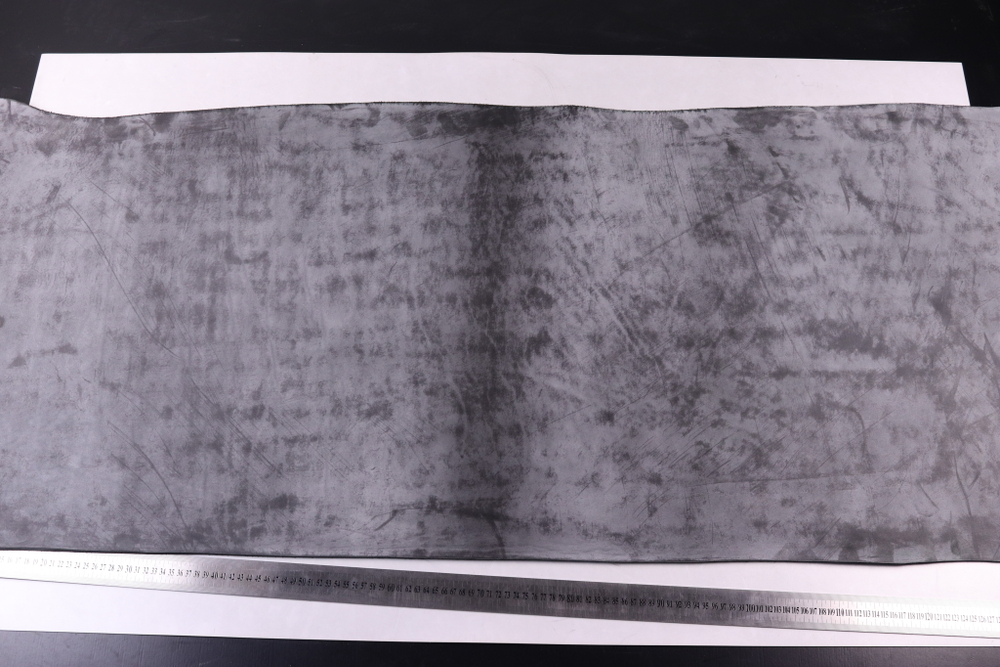 19 20 21 22 23 24 25 26 27 28 29 30 31 32 33 34 35 36 37 38 39 40 41 42 43 44 45 46 47 48 49 50 51 52 53 54 55 56 57 58 59 60 61 62 63 64 65 66 67 68 69 70 71 72 73 74 75 76 77 78 79 80 81 82 83 84 85 86 87 88 89 90 91 92 93 94 95 96 97 98 99 100 101 102 103 104 105 106 107 108 109 110 111 112 113 114 115 116 117 118 119 120 121 122 123 124 125 126 127